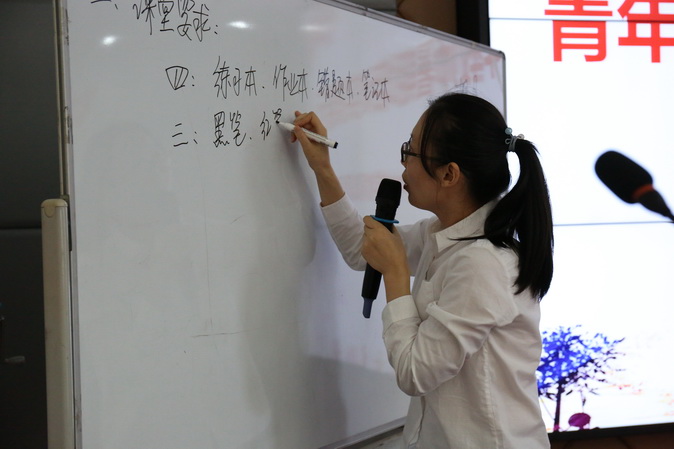 一、课堂要求：
四：练习本、作业本、错题本、笔记本
三：黑笔、红笔
青年